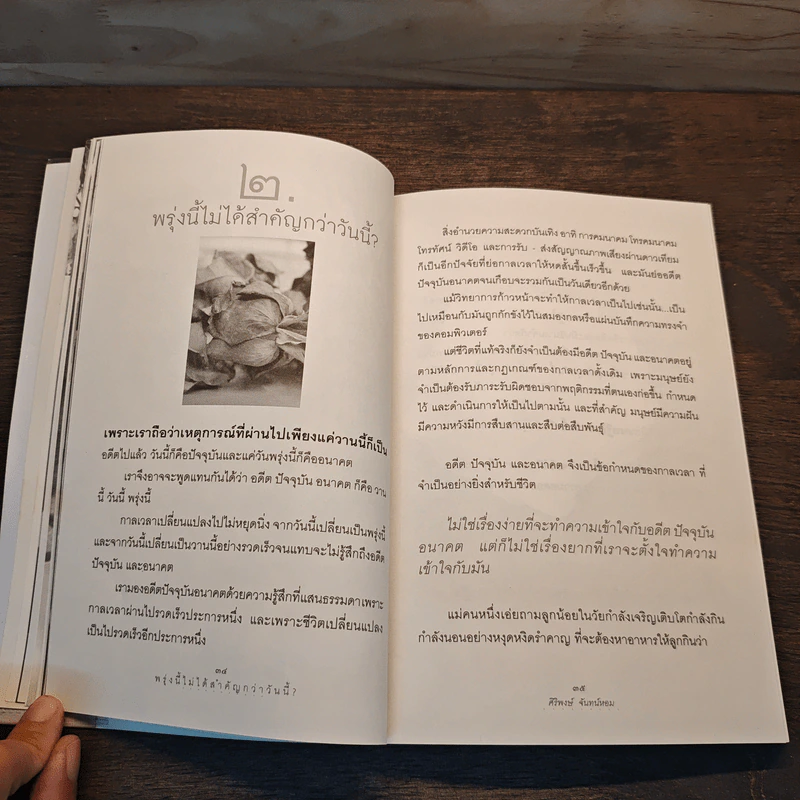 ๒.
พรุ่งนี้ไม่ได้สำคัญกว่าวันนี้?
เพราะเราถือว่าเหตุการณ์ที่ผ่านไปเพียงแค่วานนี้ก็เป็น
อดีตไปแล้ว วันนี้ก็คือปัจจุบันและแค่วันพรุ่งนี้ก็คืออนาคต
เราจึงอาจจะพูดแทนกันได้ว่า อดีต ปัจจุบัน อนาคต ก็คือ วาน
นี้ วันนี้ พรุ่งนี้
กาลเวลาเปลี่ยนแปลงไปไม่หยุดนิ่ง จากวันนี้เปลี่ยนเป็นพรุ่งนี้
และจากวันนี้เปลี่ยนเป็นวานนี้อย่างรวดเร็วจนแทบจะไม่รู้สึกถึงอดีต
ปัจจุบัน และอนาคต
เรามองอดีตปัจจุบันอนาคตด้วยความรู้สึกที่แสนธรรมดาเพราะ
กาลเวลาผ่านไปรวดเร็วประการหนึ่ง และเพราะชีวิตเปลี่ยนแปลง
เป็นไปรวดเร็วอีกประการหนึ่ง
๓๔
พรุ่งนี้ไม่ได้สำคัญกว่าวันนี้?
สิ่งอำนวยความสะดวกบันเทิง อาทิ การคมนาคม โทรคมนาคม
โทรทัศน์ วิดีโอ และการรับ - ส่งสัญญาณภาพเสียงผ่านดาวเทียม
ก็เป็นอีกปัจจัยที่ย่อกาลเวลาให้หดสั้นขึ้นเร็วขึ้น และมันย่ออดีต
ปัจจุบันอนาคตจนเกือบจะรวมกันเป็นวันเดียวอีกด้วย
แม้วิทยาการก้าวหน้าจะทำให้กาลเวลาเป็นไปเช่นนั้น...เป็น
ไปเหมือนกับมันถูกกักขังไว้ในสมองกลหรือแผ่นบันทึกความทรงจำ
ของคอมพิวเตอร์
แต่ชีวิตที่แท้จริงก็ยังจำเป็นต้องมีอดีต ปัจจุบัน และอนาคตอยู่
ตามหลักการและกฎเกณฑ์ของกาลเวลาดั้งเดิม เพราะมนุษย์ยัง
จำเป็นต้องรับภาระรับผิดชอบจากพฤติกรรมที่ตนเองก่อขึ้น กำหนด
ไว้ และดำเนินการให้เป็นไปตามนั้น และที่สำคัญ มนุษย์มีความฝัน
มีความหวังมีการสืบสานและสืบต่อสืบพันธุ์
อดีต ปัจจุบัน และอนาคต จึงเป็นข้อกำหนดของกาลเวลา ที่
จำเป็นอย่างยิ่งสำหรับชีวิต
ไม่ใช่เรื่องง่ายที่จะทำความเข้าใจกับอดีต ปัจจุบัน
อนาคต แต่ก็ไม่ใช่เรื่องยากที่เราจะตั้งใจทำความ
เข้าใจกับมัน
แม่คนหนึ่งเอ่ยถามลูกน้อยในวัยกำลังเจริญเติบโตกำลังกิน
กำลังนอนอย่างหงุดหงิดรำคาญ ที่จะต้องหาอาหารให้ลูกกินว่า
๓๕
ศิริพงษ์ จันทน์หอม